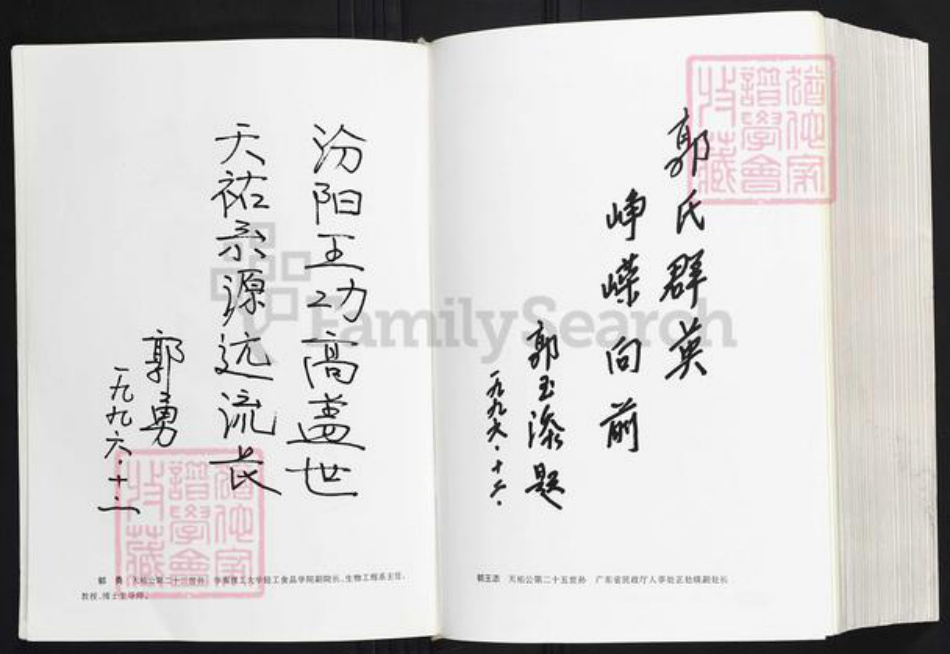 郭氏群英
峥嵘向前
郭玉添题
一九九六·十二·
郭玉添 天祐公第二十五世孙 广东省民政厅人事处正处级副处长
汾阳王功高盖世
天祐宗源远流长
郭勇
一九九六·十二
郭勇（天祐公第二十三世孙）华南理工大学轻工食品学院副院长、生物工程系主任、
教授、博士生导师。
谱学會
收藏
谱学會
收藏
FamilySearch